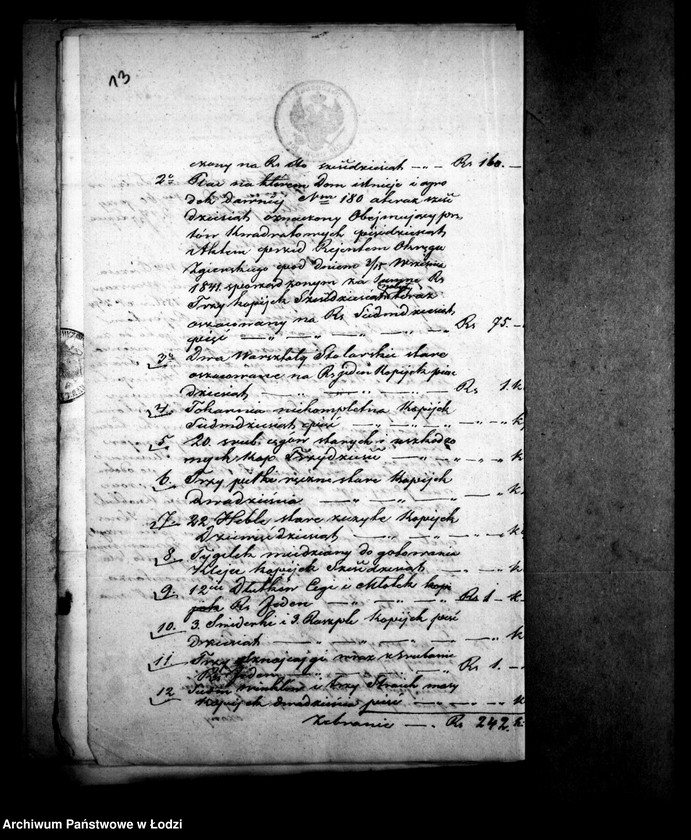 13
czony na Rs sto sześćdziesiąt — „ — Rs 160. —
2o Plac na którem Dom istnieje i ogro
dek dawniej Nrm 180 a teraz sześć
dziesiąt oznaczony Obejmujący prę
tów kwadratowych pięćdziesiąt
Aktem przed Rejentem Okręgu
Zgierskiego pod dniem 3/15 Września
1841. sporządzonym za Rs
Trzy kopiejek Sześćdziesiąt teraz
oszacowany na Rs Siedmdziesiąt
pięć — „ — „ — „ — Rs 75. —
3o Dwa Warsztaty Stolarskie stare
oszacowane na Rs jeden Kopiejek pięć
dziesiąt — „ — „ — Rs 1. k
4. Tokarnia niekompletna Kopiejek
Siedmdziesiąt pięć — „ — „ — „ k
5. 20. śrub starych i uszkodzo
nych kop. Trzydzieści — „ — „ — „ k
6. Trzy piłki ręczne stare Kopiejek
dwadzieścia — „ — „ — „ k
7. 22. Heble stare zużyte Kopiejek
Dziewięćdziesiąt — „ — „ — k
8. Tygielek miedziany do gotowania
kleju kopiejek Sześćdziesiąt — „ — k
9. 12cie Dłutków Cegi i Młotek
Rs Jeden — „ — „ Rs 1 — k
10. 3. Śmiderki i 3. Raszple kopiejek pięć
dziesiąt — „ — „ — „ k
11. Trzy
Rs Jeden — „ — Rs 1. —
12. Siedm winklów i trzy Strach masy
kopiejek dwadzieścia pięć — „ — k
Zebranie — . Rs 242. k
Archiwum Państwowe w Łodzi